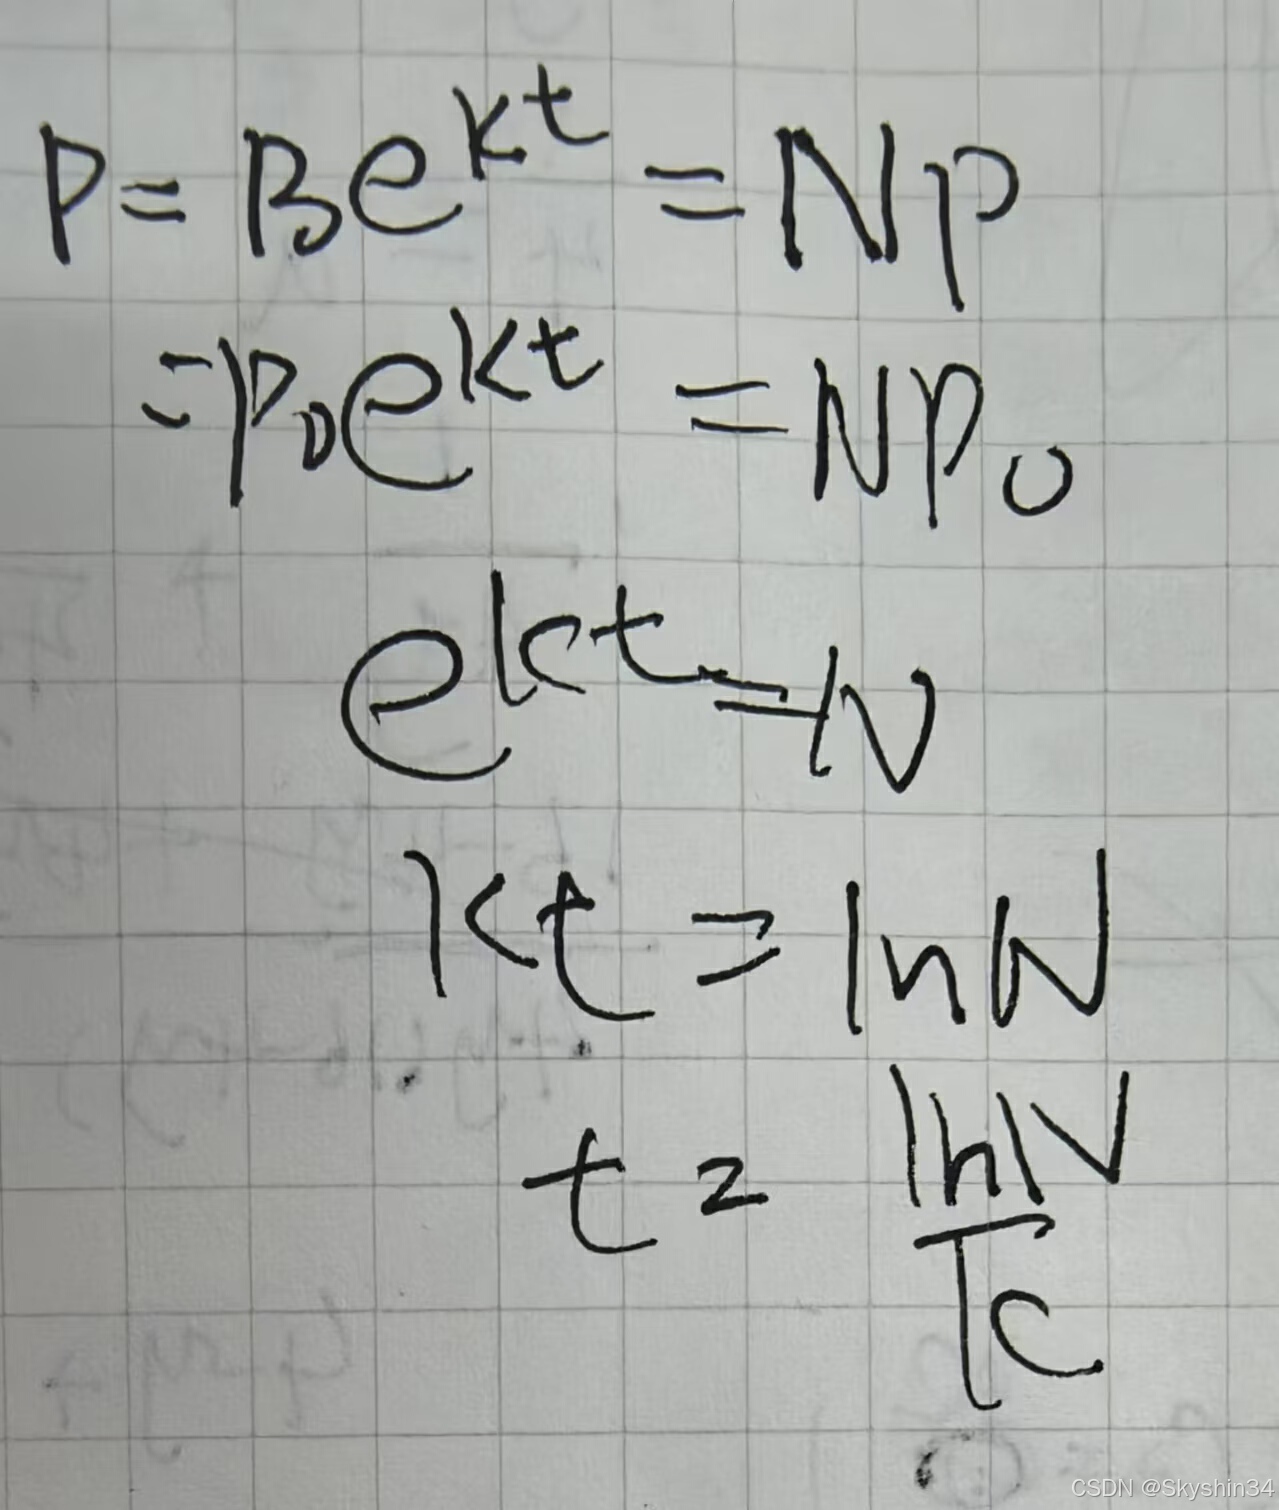 P = Be^{kt} = Np
= P_0 e^{kt} = NP_0
e^{kt} = N
kt = lnN
t = \frac{lnN}{k}
CSDN @Skyshin34